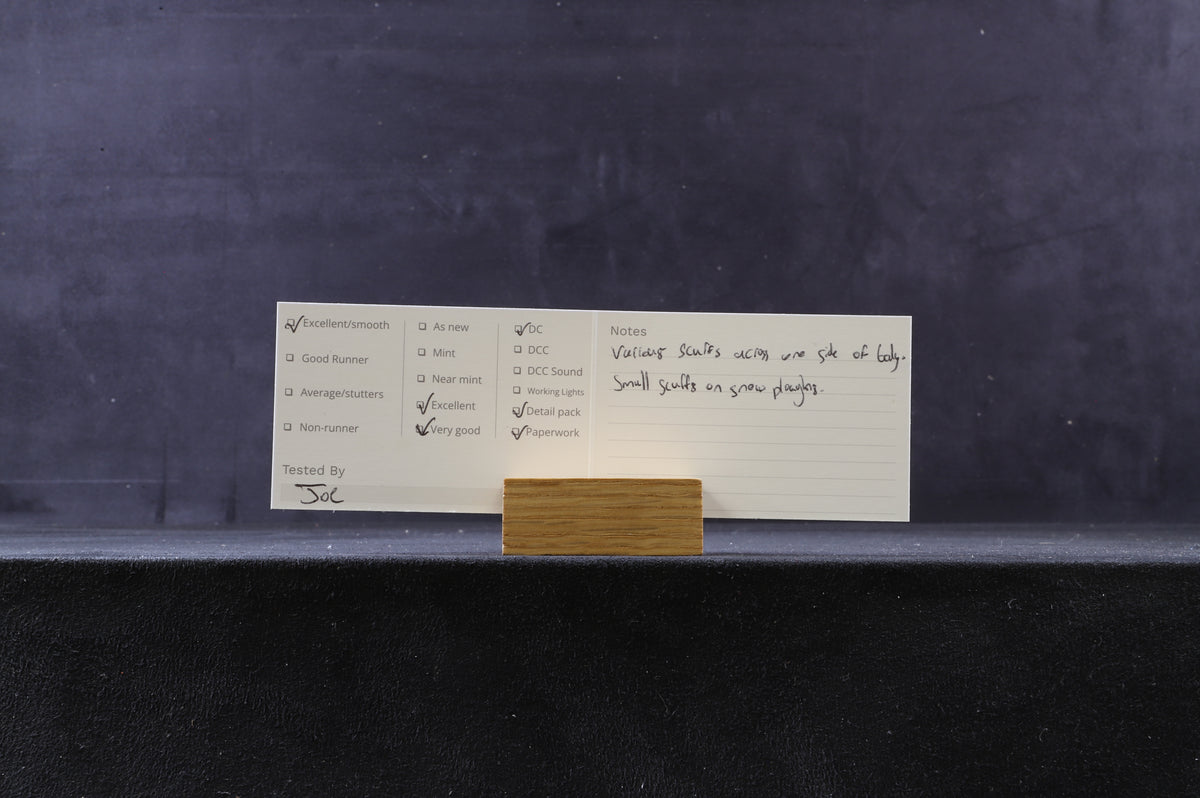 Excellent/smooth
Good Runner
Average/stutters
Non-runner
Tested By
Joe
As new
Mint
Near mint
Excellent
Very good
DC
DCC
DCC Sound
Working Lights
Detail pack
Paperwork
Notes
Various scuffs across one side of body.
Small scuffs on snow ploughs.